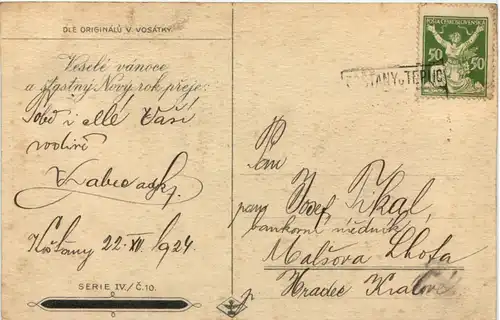 DLE ORIGINÁLŮ V. VOSÁTKY.
Veselé vánoce
a šťastný Nový rok přeje:
Tobě i celé Vaší
rodině
Košťany 22-XII 1924
SERIE IV./Č.10.
POŠTA ČESKOSLOVENSKÁ
50 50
KOŠŤANY u TEPLIC
Pan
Josef Tikal
bankovní úředník
Malšova Lhota
p Hradec Králové